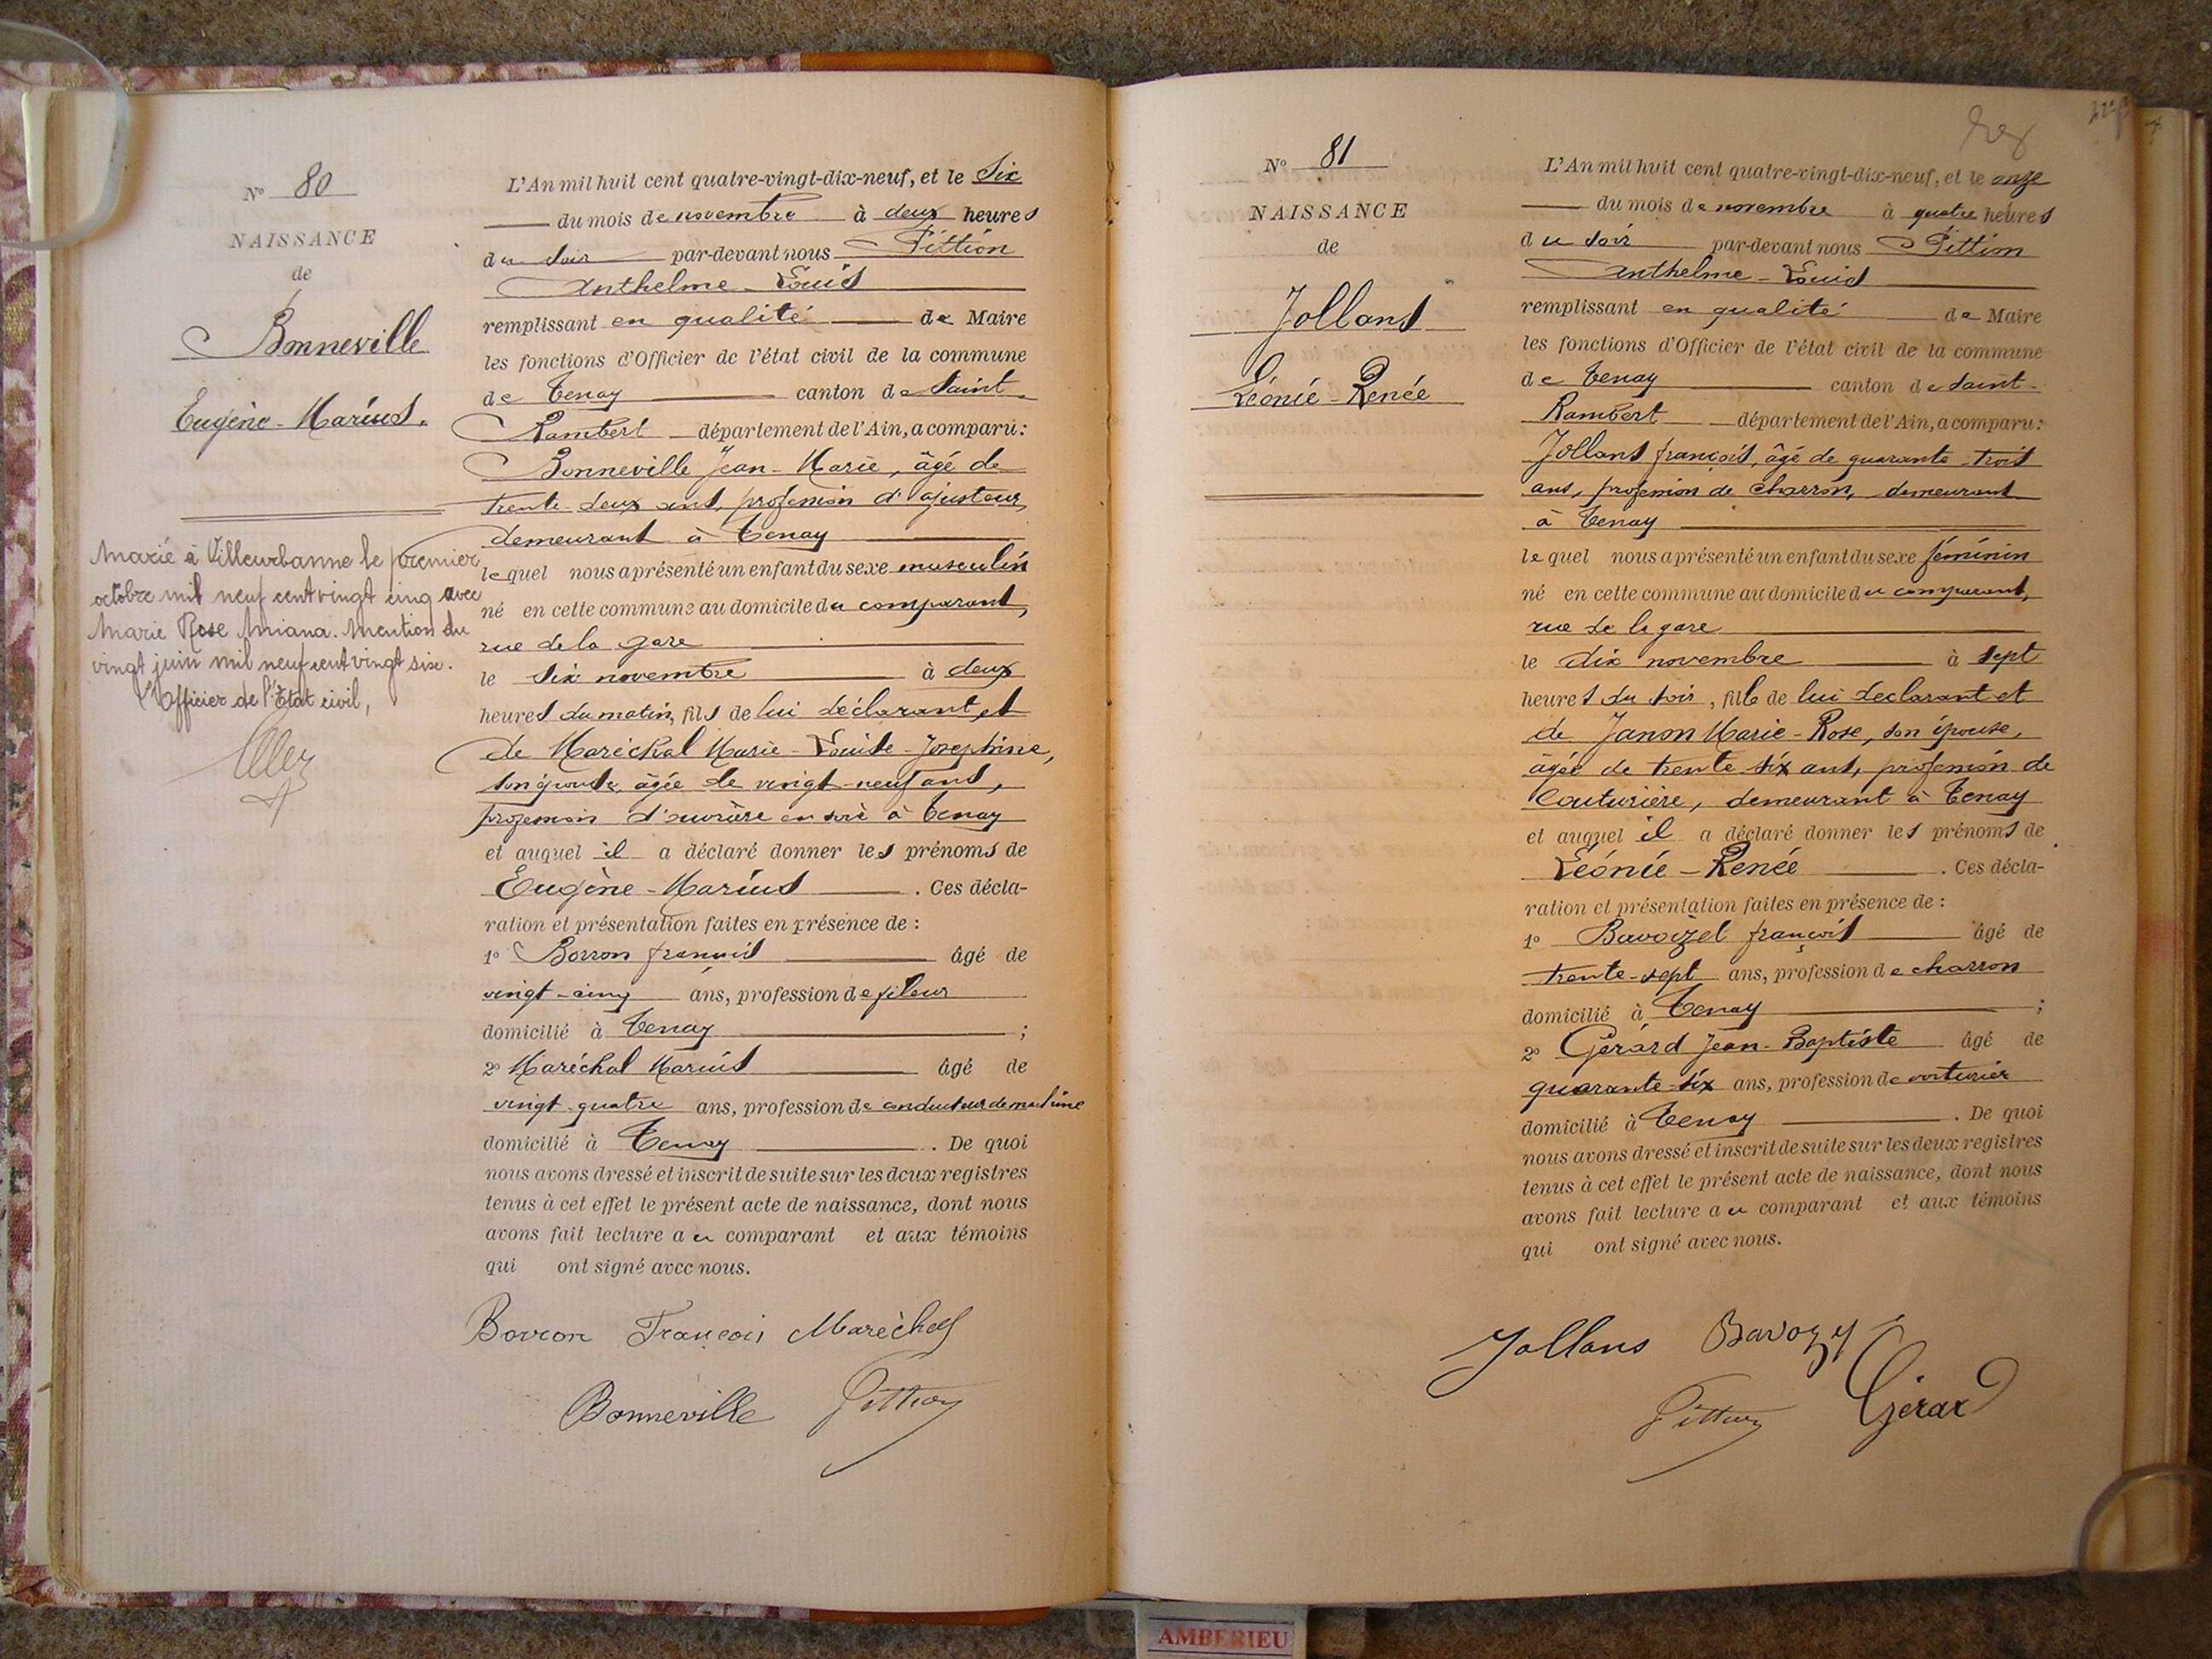 N° 80
NAISSANCE
de
Bonneville
Eugène-Marius.
Marié à Villeurbanne le premier
octobre mil neuf cent vingt cinq avec
Marie Rose Miana. Mention du
vingt juin mil neuf cent vingt six.
L'Officier de l'Etat civil,
L'An mil huit cent quatre-vingt-dix-neuf, et le six
du mois de novembre à deux heures
du soir par-devant nous Pittion
Anthelme-Louis
remplissant en qualité de Maire
les fonctions d'Officier de l'état civil de la commune
de Tenay canton de Saint-
Rambert département de l'Ain, a comparu:
Bonneville Jean-Marie, âgé de
trente-deux ans, profession d'ajusteur,
demeurant à Tenay
lequel nous a présenté un enfant du sexe masculin
né en cette commune au domicile du comparant,
rue de la gare
le six novembre à deux
heures du matin, fils de lui déclarant et
de Maréchal Marie-Louise-Josephine,
son épouse, âgée de vingt-neuf ans,
profession d'ouvrière en soie à Tenay
et auquel il a déclaré donner les prénoms de
Eugène-Marius . Ces décla-
ration et présentation faites en présence de :
1° Borron françois âgé de
vingt-cinq ans, profession de fileur
domicilié à Tenay ;
2° Maréchal Marius âgé de
vingt-quatre ans, profession de conducteur de machine
domicilié à Tenay . De quoi
nous avons dressé et inscrit de suite sur les deux registres
tenus à cet effet le présent acte de naissance, dont nous
avons fait lecture au comparant et aux témoins
qui ont signé avec nous.
Borron François Maréchal
Bonneville Pittion
N° 81
NAISSANCE
de
Jollans
Léonie-Renée
L'An mil huit cent quatre-vingt-dix-neuf, et le onze
du mois de novembre à quatre heures
du soir par-devant nous Pittion
Anthelme-Louis
remplissant en qualité de Maire
les fonctions d'Officier de l'état civil de la commune
de Tenay canton de Saint-
Rambert département de l'Ain, a comparu:
Jollans françois, âgé de quarante-trois
ans, profession de charron, demeurant
à Tenay
lequel nous a présenté un enfant du sexe féminin
né en cette commune au domicile du comparant,
rue de la gare
le dix novembre à sept
heures du soir, fille de lui declarant et
de Janon Marie-Rose, son épouse,
âgée de trente six ans, profession de
couturière, demeurant à Tenay
et auquel il a déclaré donner les prénoms de
Léonie-Renée . Ces décla-
ration et présentation faites en présence de :
1° Bavozet françois âgé de
trente-sept ans, profession de charron
domicilié à Tenay ;
2° Gérard Jean-Baptiste âgé de
quarante-six ans, profession de voiturier
domicilié à Tenay . De quoi
nous avons dressé et inscrit de suite sur les deux registres
tenus à cet effet le présent acte de naissance, dont nous
avons fait lecture au comparant et aux témoins
qui ont signé avec nous.
Jollans Bavozy
Pittion Gérard
AMBERIEU